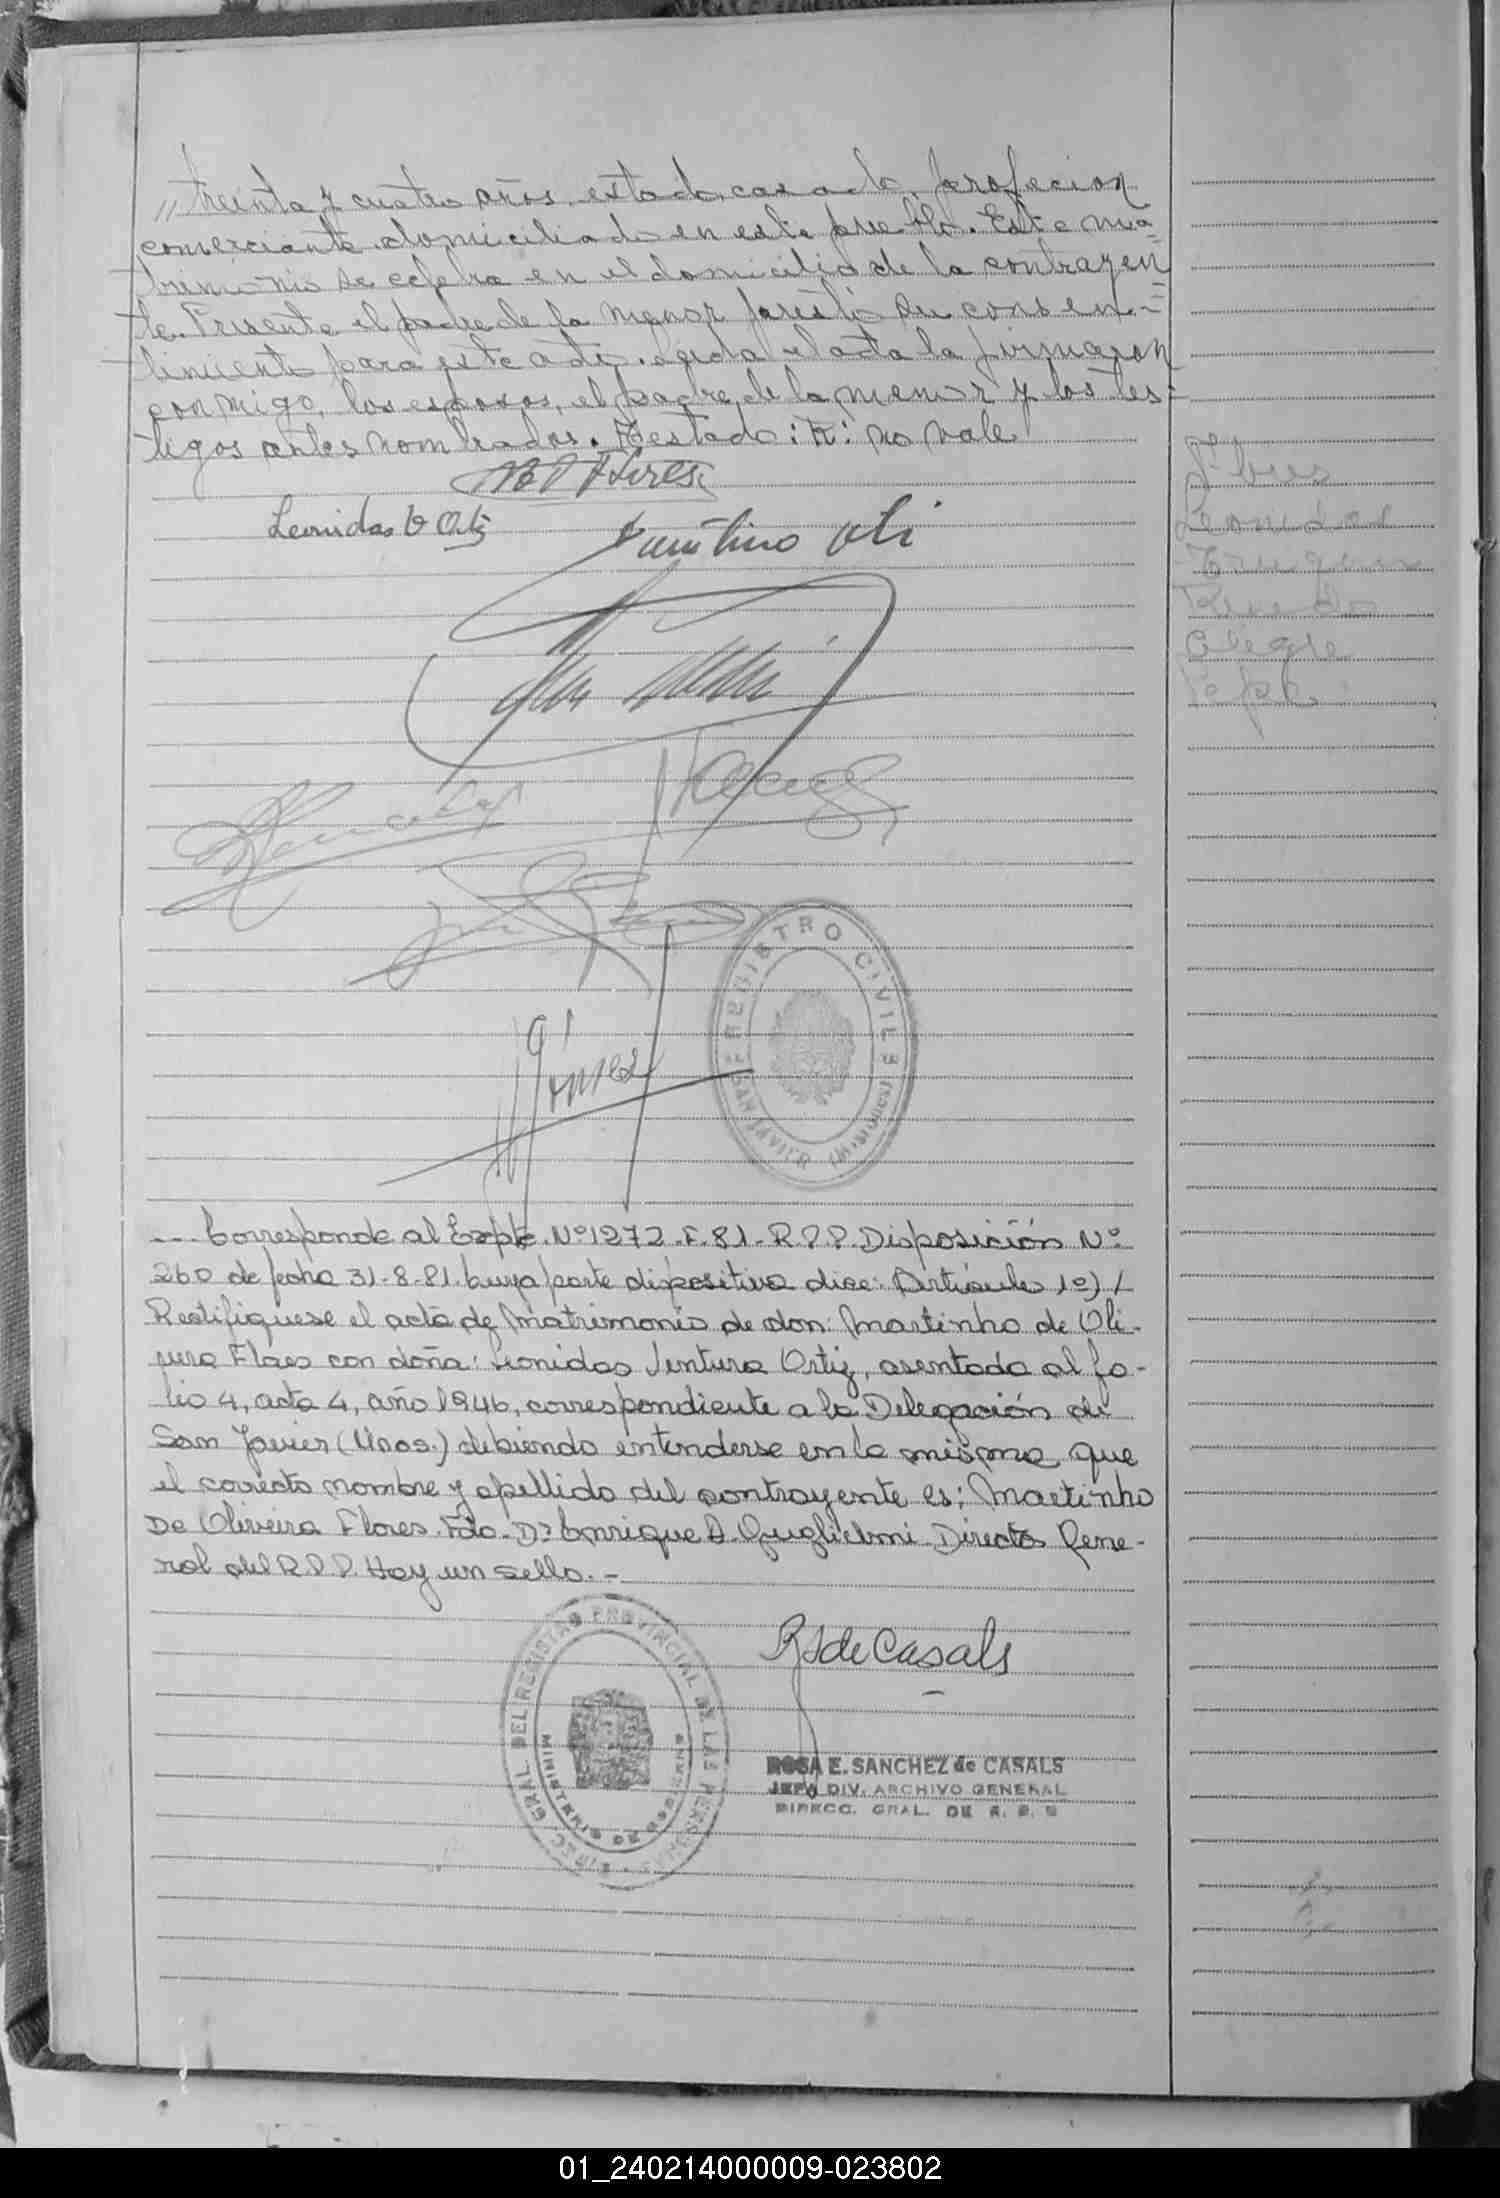 ,, treinta y cuatro años, estado casado, profecion
comerciante domiciliado en este pueblo. Este ma=
trimonio se celebra en el domicilio de la contrayen
te. Presente el padre de la menor prestó su consen=
timiento para este acto. Leida el acta la firmaron
conmigo, los esposos, el padre de la menor y los tes=
tigos antes nombrados. Testado: R: no vale
Flores
Leonidas V Ortiz
Faustino Oli
Gómez
REGISTRO CIVIL
SAN JAVIER (Misiones)
Flores
Leonidas
--- Corresponde al Expte. Nº 1272-F-81-R.P.P. Disposición Nº
260 de fecha 31-8-81. cuya parte dispositiva dice: Artículo 1º) /
Rectifiquese el acta de matrimonio de don: Martinho de Oli-
vera Flores con doña: Leonidas Ventura Ortiz, asentada al fo-
lio 4, acta 4, año 1946, correspondiente a la Delegación de
San Javier (Mnes.) debiendo entenderse en la misma que
el correcto nombre y apellido del contrayente es: Martinho
De Oliveira Flores. Fdo. Dr Enrique A. Guglielmi. Director Gene-
ral del R.P.P. Hay un sello. -
R S de Casals
DIREC. GRAL. DEL REGISTRO PROVINCIAL DE LAS PERSONAS
MINISTERIO DE GOBIERNO
ROSA E. SANCHEZ de CASALS
JEFA DIV. ARCHIVO GENERAL
DIRECC. GRAL. DE R. P. P.
01_240214000009-023802